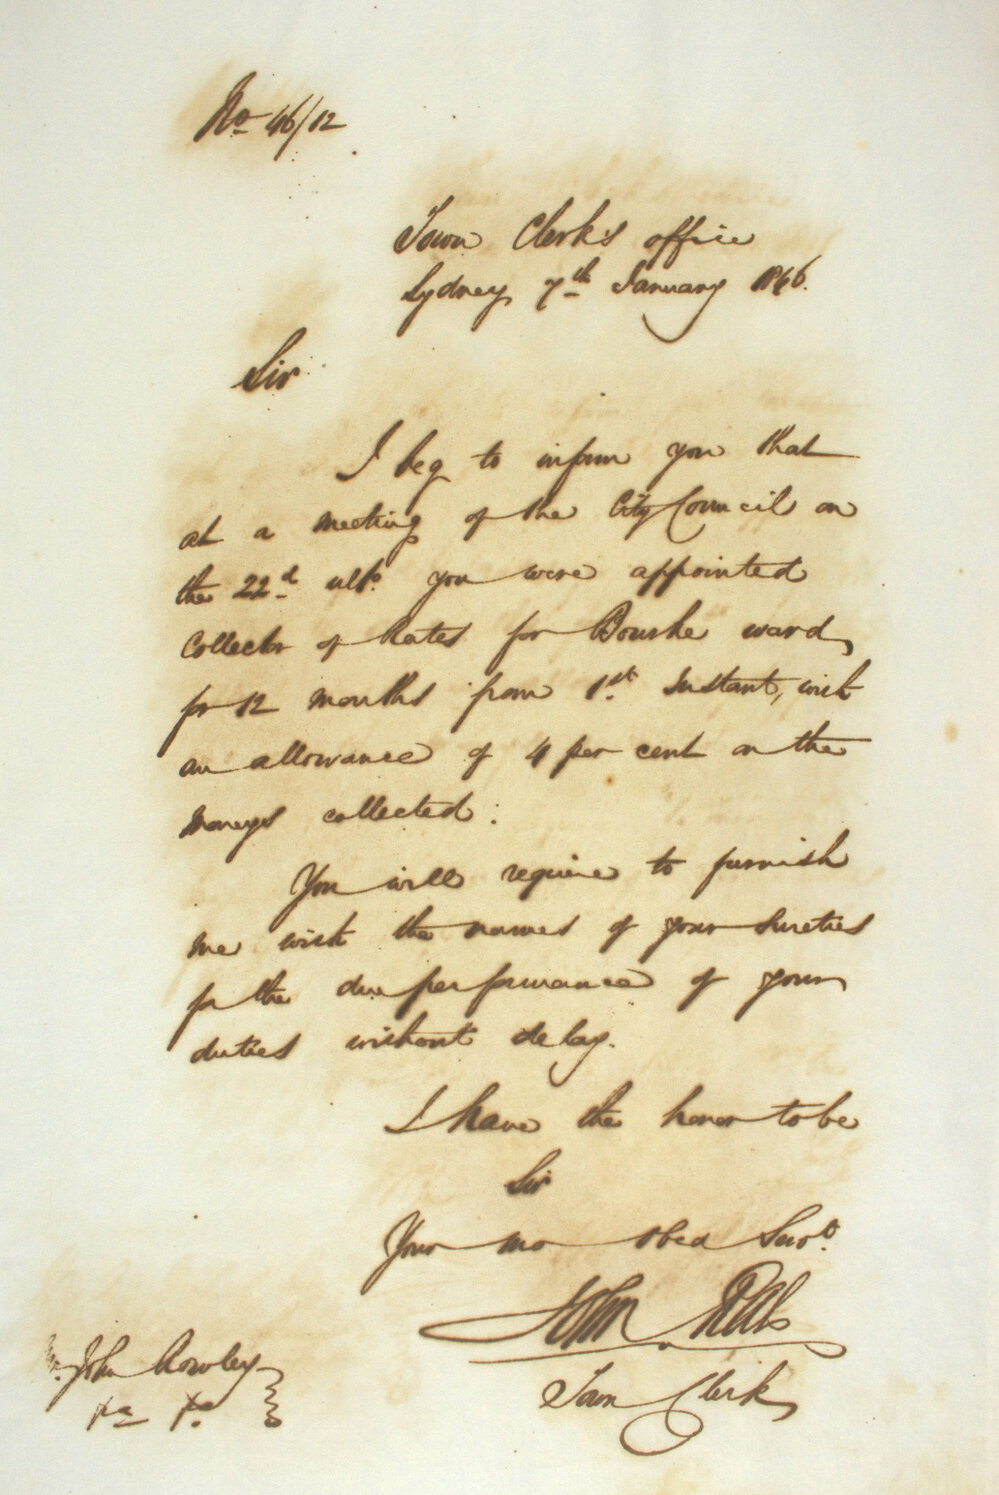 No 46/12
Town Clerk's office
Sydney 7th January 1846.
Sir
I beg to inform you that
at a meeting of the City Council on
the 22d ulto. you were appointed
Collector of Rates for Bourke ward,
for 12 months from 1st. Instant, with
an allowance of 4 per cent on the
moneys collected.
You will require to furnish
me with the names of your Sureties
for the due performance of your
duties without delay.
I have the honor to be
Sir
Your mo obed Servt.
John Rae
Town Clerk
John Rowley